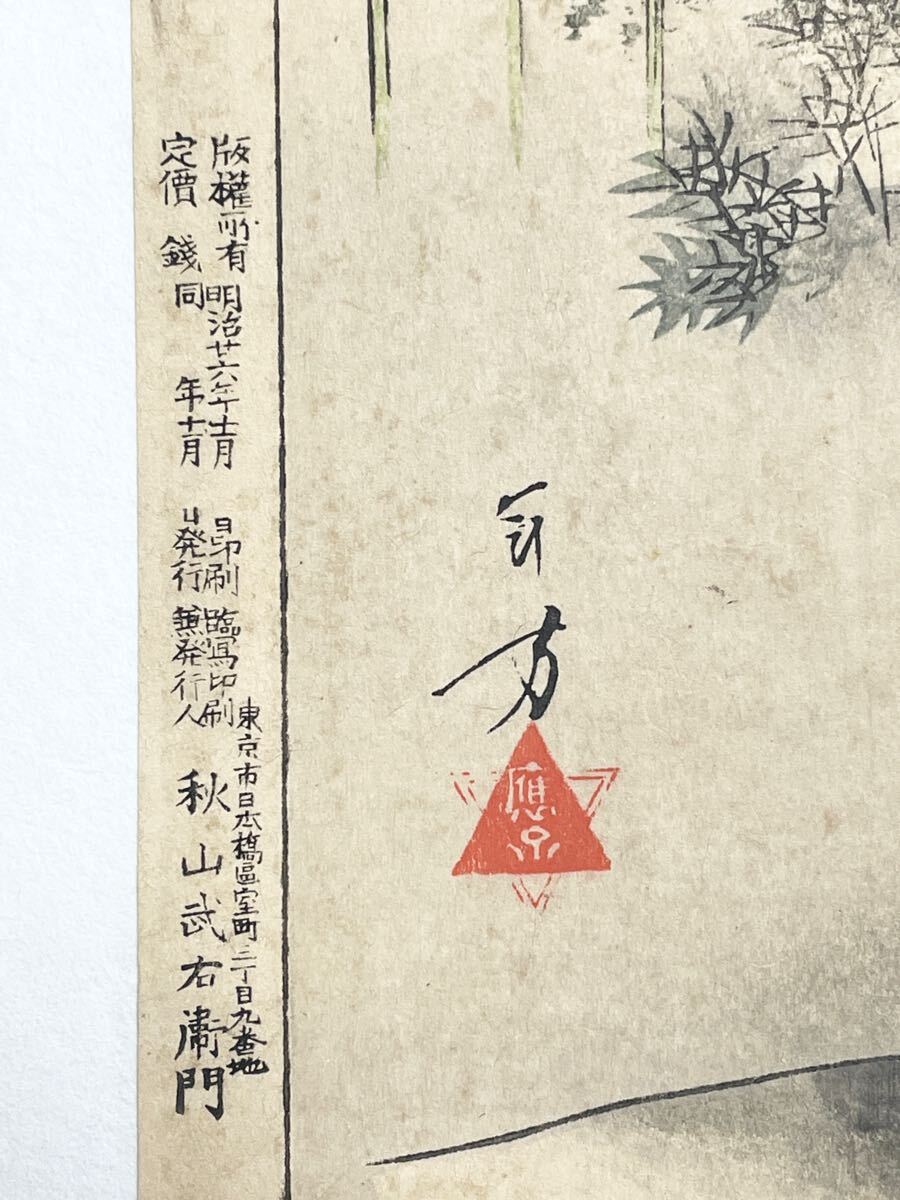 版權所有 明治廿六年十二月 日印刷 臨寫印刷
定價 錢 同 年十二月 日発行 兼発行人
東京市日本橋區室町三丁目九番地
秋山武右衛門
年方
應需